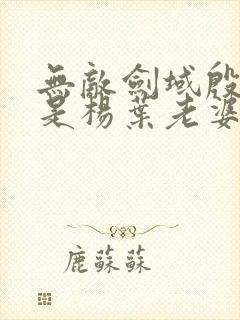 無敵劍域殷
是楊葉老婆
鹿蘇蘇